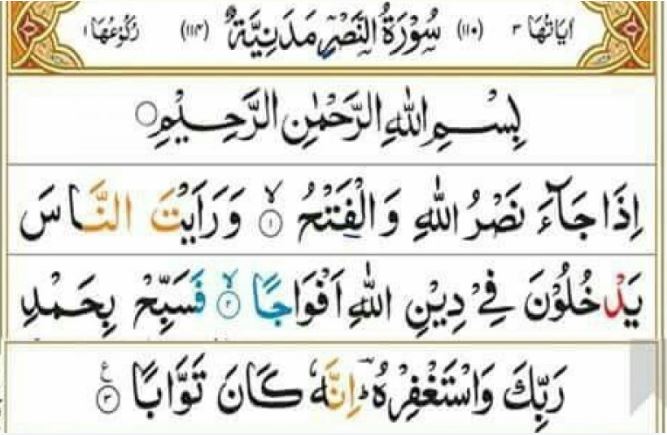 اٰیَاتُهَا ۳ (۱۱۰) سُوْرَةُ النَّصْرِ مَدَنِيَّةٌ (۱۱۴) رُكُوْعُهَا ۱
بِسْمِ اللّٰهِ الرَّحْمٰنِ الرَّحِيْمِ
اِذَا جَآءَ نَصْرُ اللّٰهِ وَالْفَتْحُ ۙ۱ وَرَاَيْتَ النَّاسَ
يَدْخُلُوْنَ فِيْ دِيْنِ اللّٰهِ اَفْوَاجًا ۙ۲ فَسَبِّحْ بِحَمْدِ
رَبِّكَ وَاسْتَغْفِرْهُ ؕ اِنَّهٗ كَانَ تَوَّابًا ۳ ع